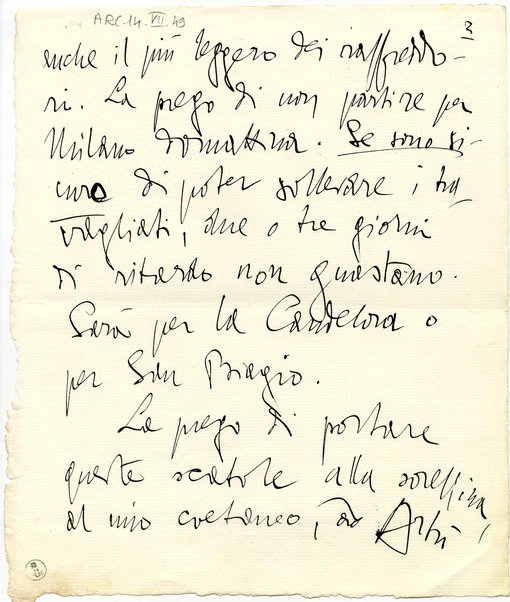 ARC.14.VII.49
3
anche il più leggero dei raffreddo-
ri. La prego di non partire per
Milano domattina. Se sono si-
curo di poter sollevare i tra-
vagliati, due o tre giorni
di ritardo non guastano.
Sarà per la Candelora o
per San Biagio.
La prego di portare
queste scatole alla sorellina,
al mio coetaneo, ad Artù